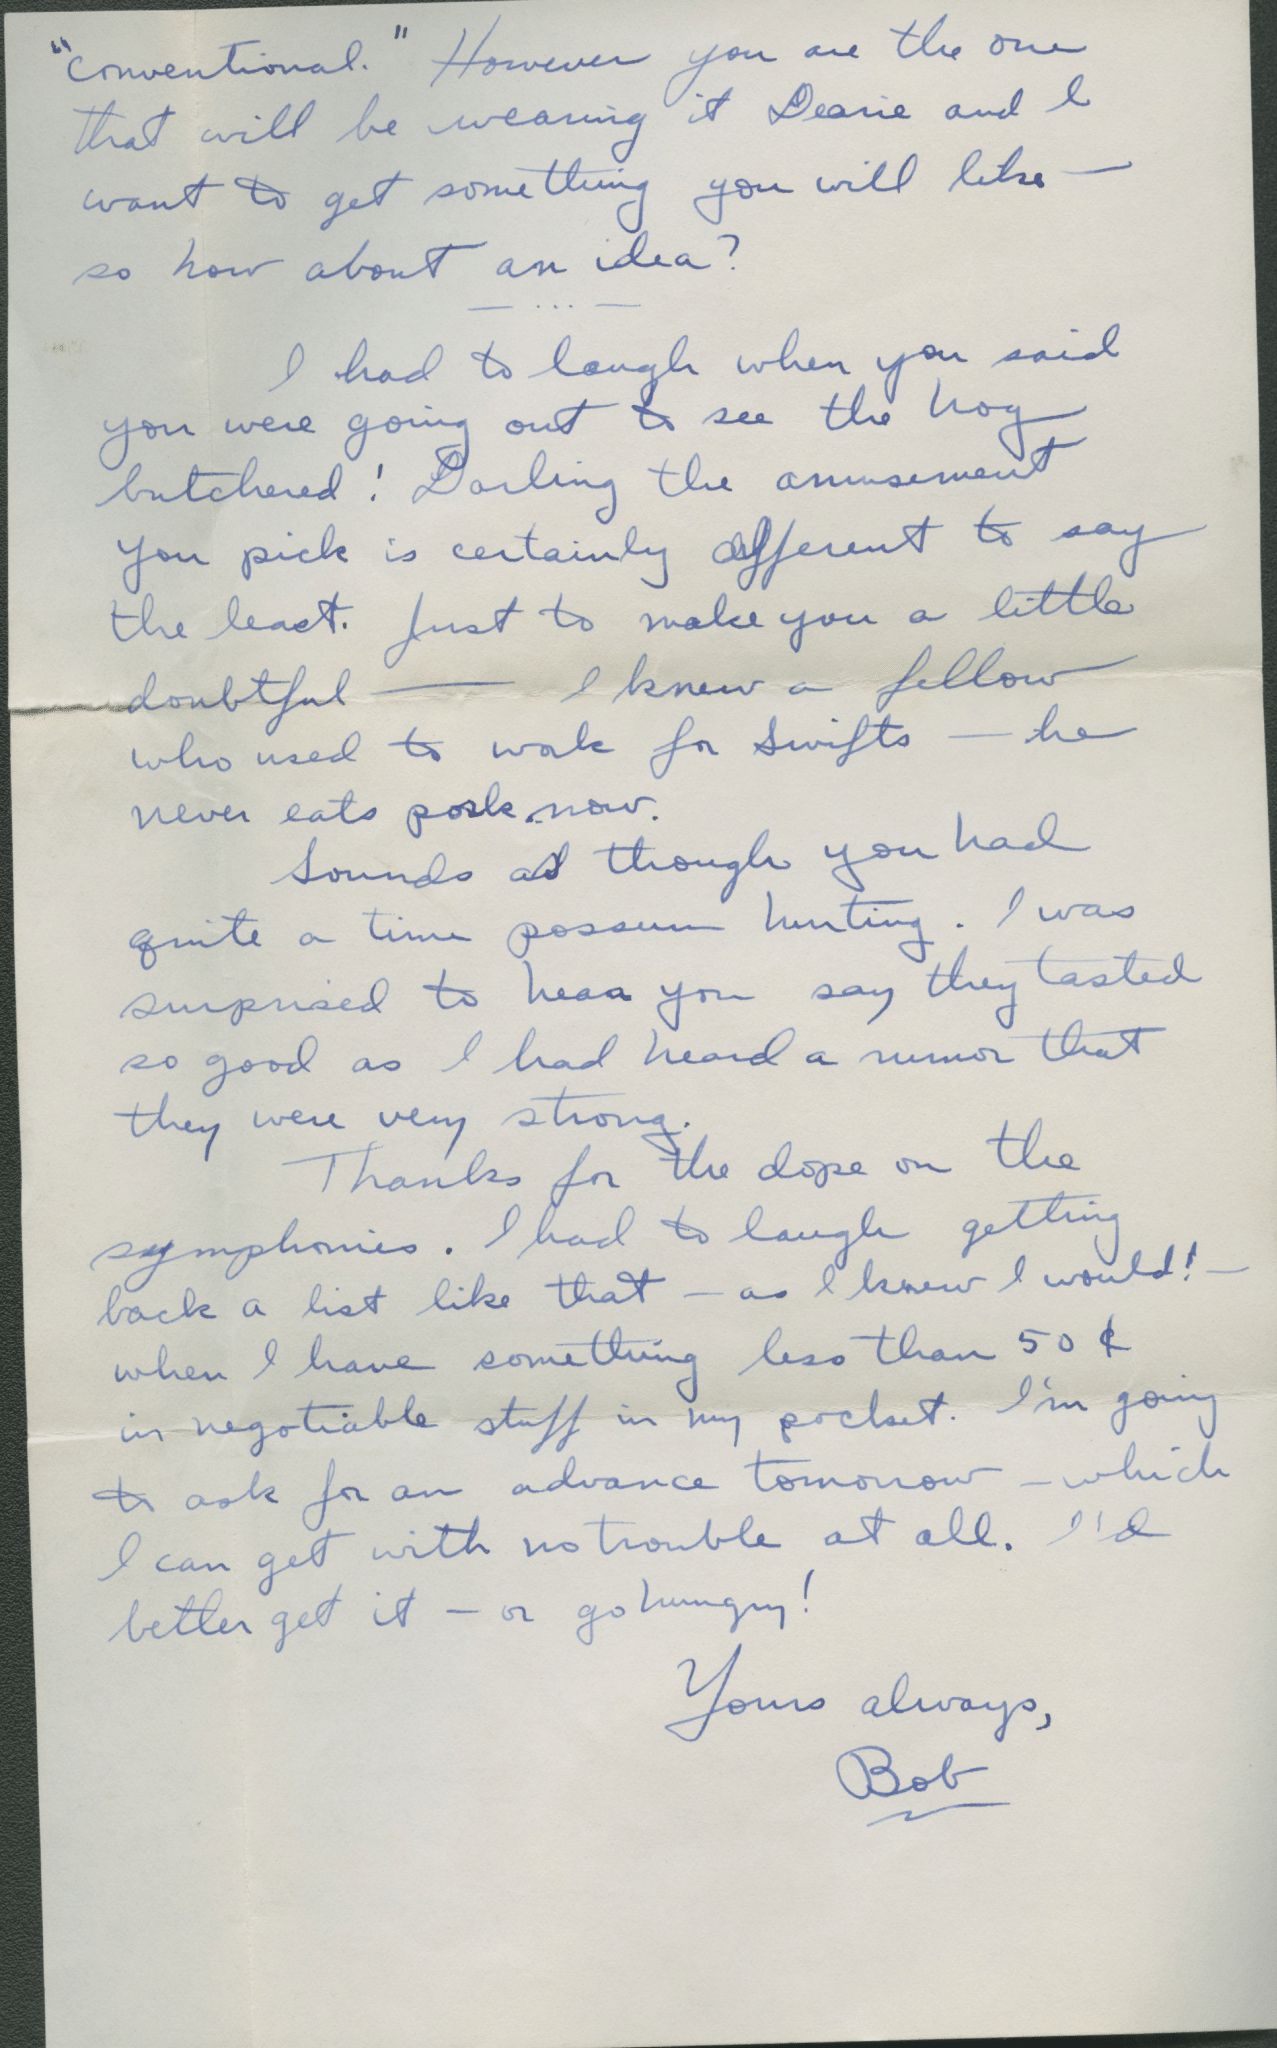 "conventional." However you are the one
that will be wearing it Dearie and I
want to get something you will like —
so how about an idea?
— ... —
I had to laugh when you said
you were going out to see the hog
butchered! Darling the amusement
you pick is certainly different to say
the least. Just to make you a little
doubtful — I knew a fellow
who used to work for Swifts — he
never eats pork now.
Sounds as though you had
quite a time possum hunting. I was
surprised to hear you say they tasted
so good as I had heard a rumor that
they were very strong.
Thanks for the dope on the
symphonies. I had to laugh getting
back a list like that — as I knew I would! —
when I have something less than 50¢
in negotiable stuff in my pocket. I'm going
to ask for an advance tomorrow — which
I can get with no trouble at all. I'd
better get it — or go hungry!
Yours always,
Bob